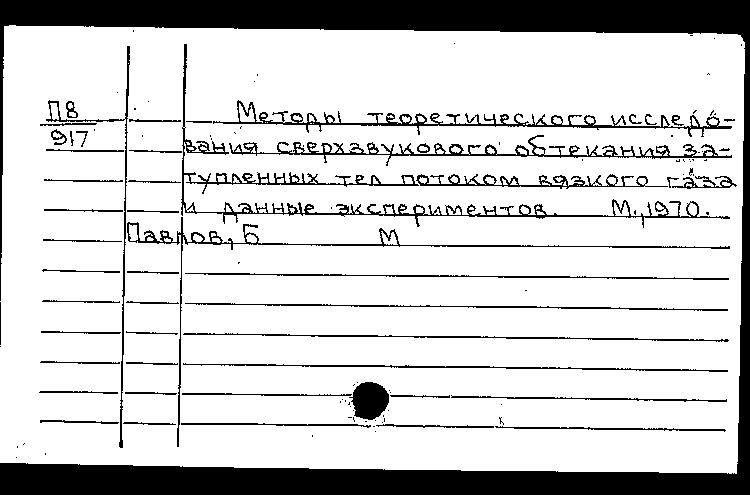 П8
917
Методы теоретического исследо-
вания сверхзвукового обтекания за-
тупленных тел потоком вязкого газа
и данные экспериментов. М., 1970.
Павлов, Б М